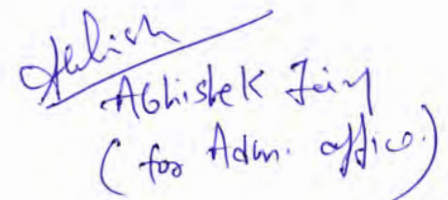 Abhish
Abhishek Jain
(for Adm. office.)